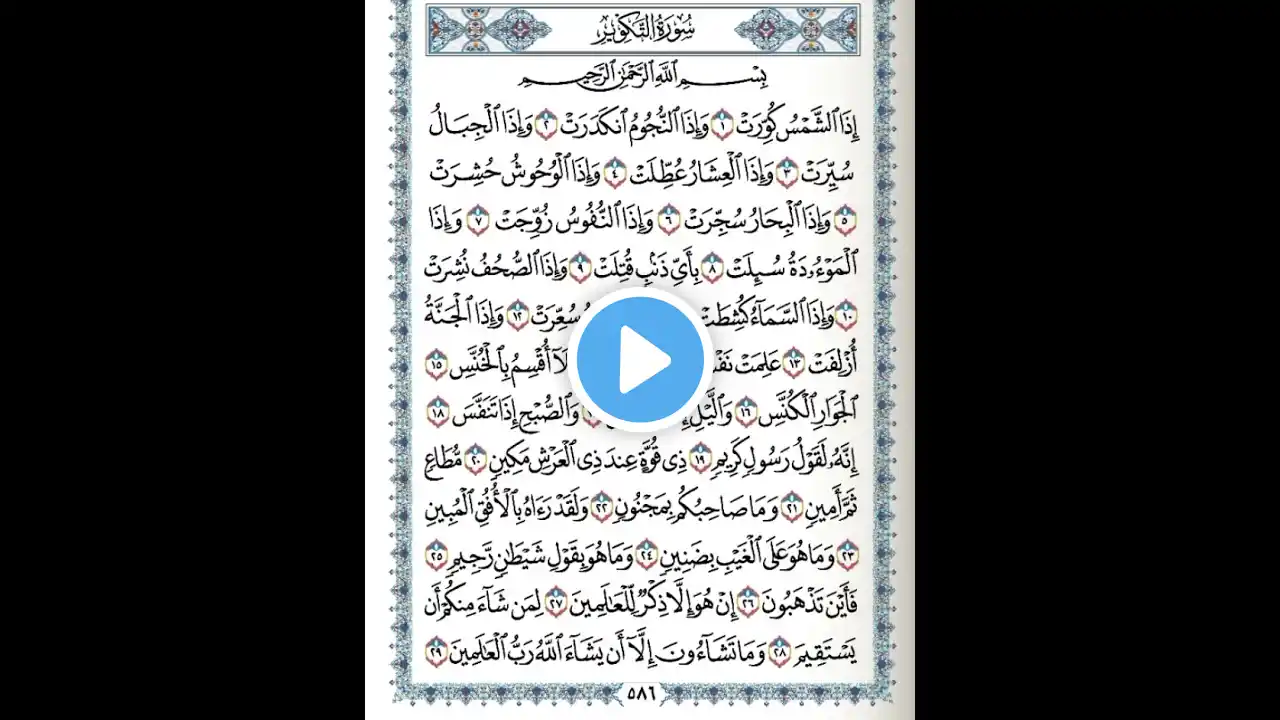 سُورَةُ التَّكْوِيرِ
بِسْمِ ٱللَّهِ ٱلرَّحْمَٰنِ ٱلرَّحِيمِ
إِذَا ٱلشَّمْسُ كُوِّرَتْ ١ وَإِذَا ٱلنُّجُومُ ٱنكَدَرَتْ ٢ وَإِذَا ٱلْجِبَالُ
سُيِّرَتْ ٣ وَإِذَا ٱلْعِشَارُ عُطِّلَتْ ٤ وَإِذَا ٱلْوُحُوشُ حُشِرَتْ
٥ وَإِذَا ٱلْبِحَارُ سُجِّرَتْ ٦ وَإِذَا ٱلنُّفُوسُ زُوِّجَتْ ٧ وَإِذَا
ٱلْمَوْءُۥدَةُ سُئِلَتْ ٨ بِأَيِّ ذَنۢبٍ قُتِلَتْ ٩ وَإِذَا ٱلصُّحُفُ نُشِرَتْ
١٠ وَإِذَا ٱلسَّمَآءُ كُشِطَتْ سُعِّرَتْ ١٢ وَإِذَا ٱلْجَنَّةُ
أُزْلِفَتْ ١٣ عَلِمَتْ أُقْسِمُ بِٱلْخُنَّسِ ١٥
ٱلْجَوَارِ ٱلْكُنَّسِ ١٦ وَٱلَّيْلِ وَٱلصُّبْحِ إِذَا تَنَفَّسَ ١٨
إِنَّهُۥ لَقَوْلُ رَسُولٍ كَرِيمٍ ١٩ ذِى قُوَّةٍ عِندَ ذِى ٱلْعَرْشِ مَكِينٍ ٢٠ مُّطَاعٍ
ثَمَّ أَمِينٍ ٢١ وَمَا صَاحِبُكُم بِمَجْنُونٍ ٢٢ وَلَقَدْ رَءَاهُ بِٱلْأُفُقِ ٱلْمُبِينِ
٢٣ وَمَا هُوَ عَلَى ٱلْغَيْبِ بِضَنِينٍ ٢٤ وَمَا هُوَ بِقَوْلِ شَيْطَٰنٍ رَّجِيمٍ ٢٥
فَأَيْنَ تَذْهَبُونَ ٢٦ إِنْ هُوَ إِلَّا ذِكْرٌ لِّلْعَٰلَمِينَ ٢٧ لِمَن شَآءَ مِنكُمْ أَن
يَسْتَقِيمَ ٢٨ وَمَا تَشَآءُونَ إِلَّآ أَن يَشَآءَ ٱللَّهُ رَبُّ ٱلْعَٰلَمِينَ ٢٩
٥٨٦